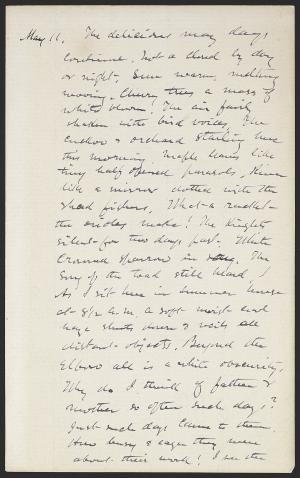 May 11. The delicious may days
continue. Not a cloud by day
or night. Sun warm, nothing
moving. Cherry trees a mass of
white bloom! The air fairly
shaken with bird voices. The
Cuckoo & orchard starling here
this morning. Maple leaves like
tiny half opened parasols, River
like a mirror dotted with the
shad fishers. What a racket
the orioles make! The Kinglets
silent for two days past. White
Crowned sparrow in song. The
Song of the toad still heard!
As I sit here in Summer House
at 8½ a.m. a soft moist
haze shuts down & veils all
distant objects. Beyond the
Elbow all is a white obscurity.
Why do I think of father &
mother so often such days?
Just such days came to them.
How busy & eager they were
about their work! I see the